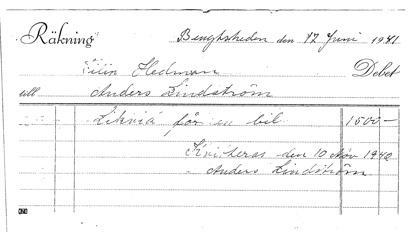 Räkning Bengtsheden den 12 Juni 1941
Elin Hedman Debet
till Anders Lindström
Likvid för en bil 1500 -
Kvitteras den 10 Nov 1940
Anders Lindström